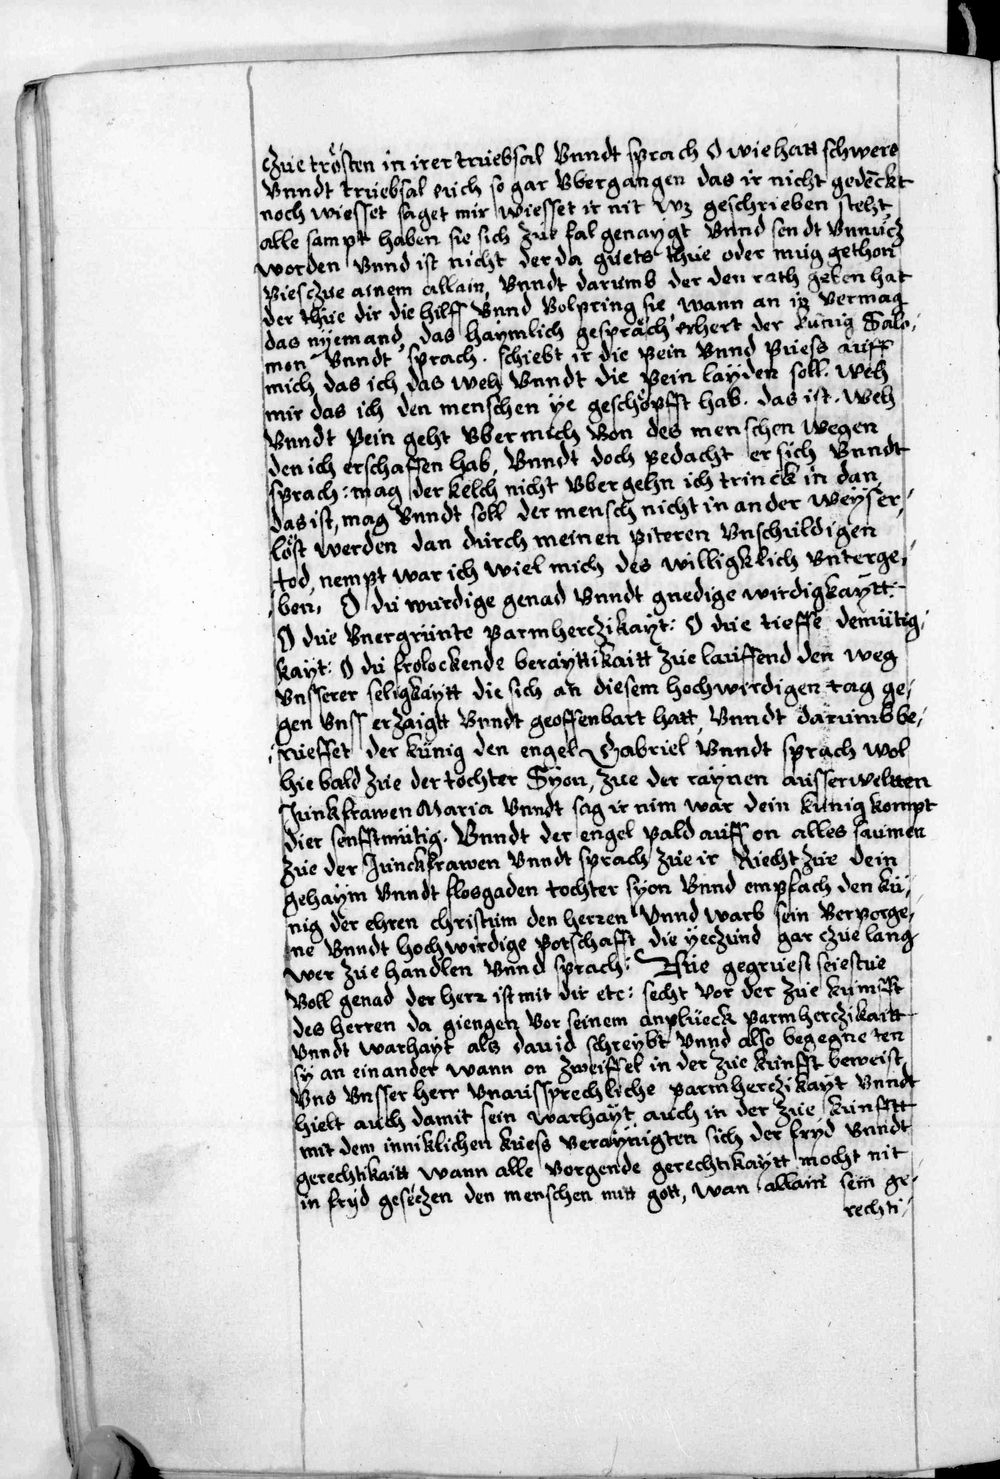 czue trösten in irer truebsal Vnndt sprach O wie hatt schwere
Vnndt truebsal euch so gar Vbergangen das ir nicht gedeckt
noch wiesset saget mir wiesset ir nit wz geschrieben steht,
alle sampt haben sie sich zue fal genaygt Vnnd sendt Vnnücz
worden Vnnd ist nicht der da guets thue oder mug gethon
Piesczue ainem allain, Vnndt darumb der den rath geben hat
der thüe dir die hilff Vnnd Volpring sie, wann an in Vermag
das nyemand, das haymlich gespräch erhert der künig Salo,
mon Vnndt sprach. schiebt ir die Pein Vnnd Puess auff
mich, das ich das weh Vnndt die Pein layden soll. Weh
mir das ich den menschen ye geschöpfft hab. das ist. Weh
Vnndt Pein geht Vber mich Von des menschen wegen
den ich erschaffen hab, Vnndt doch Pedacht er sich Vnndt
sprach: mag der kelch nicht Vbergehn ich trinck in dan,
das ist, mag Vnndt soll der mensch nicht in ander weyß er,
löst werden dan durch meinen Piteren Vnschuldigen
tod, nempt war ich wiel mich des willigklich Vnterge,
ben, O du wurdige genad Vnndt gnedige wirdigkaytt:
O due Vnergrünte Parmherczikayt: O due tieffe demütig,
kayt: O du frolockende berayttikaitt zue lauffend den weg
Vnsserer seligkaytt die sich an diesem hochwirdigen tag ge,
gen Vnss erzaigtt Vnndt geoffenbart hatt, Vnndt darumb be,
rueffet der künig den engel Gabriel Vnndt sprach wol
hie bald zue der tochter Syon, zue der raynen ausserweltten
Junkfrawen Maria Vnndt sag ir nim war dein kunig kompt
dier senfftmütig. Vnndt der engel Pald auff on alles saumen
zue der Junckfrawen Vnndt sprach zue ir Riecht zue dein
gehaym Vnndt flosgaden tochter syon Vnnd empfach den kü,
nig der ehren christum den herren Vnnd warb sein Verporge,
ne Vnndt hochwirdige Potschafft die yeczund gar czue lang
wer zue handlen Vnnd sprach: Aue gegruest seiestue
Voll genad der herr ist mit dir etc: secht Vor der zue kunfft
des herren da giengen Vor seinem anplüeck Parmherczikaitt
Vnndt warhayt als dauid schreybt Vnnd also begegneten
sy an einander wann on zweiffel in der zue kunfft beweist
Vns Vnsser herr Vnaussprechliche Parmherczikayt Vnndt
hielt auch damit sein warhayt auch in der zue kunfftt
mit dem inniklichen kuess Veraynigten sich der fryd Vnndt
gerechtikaitt wann alle Vorgende gerechtikaytt mocht nit
in fryd gesetzen den menschen mitt gott, wan allain sein ge,
rechti,